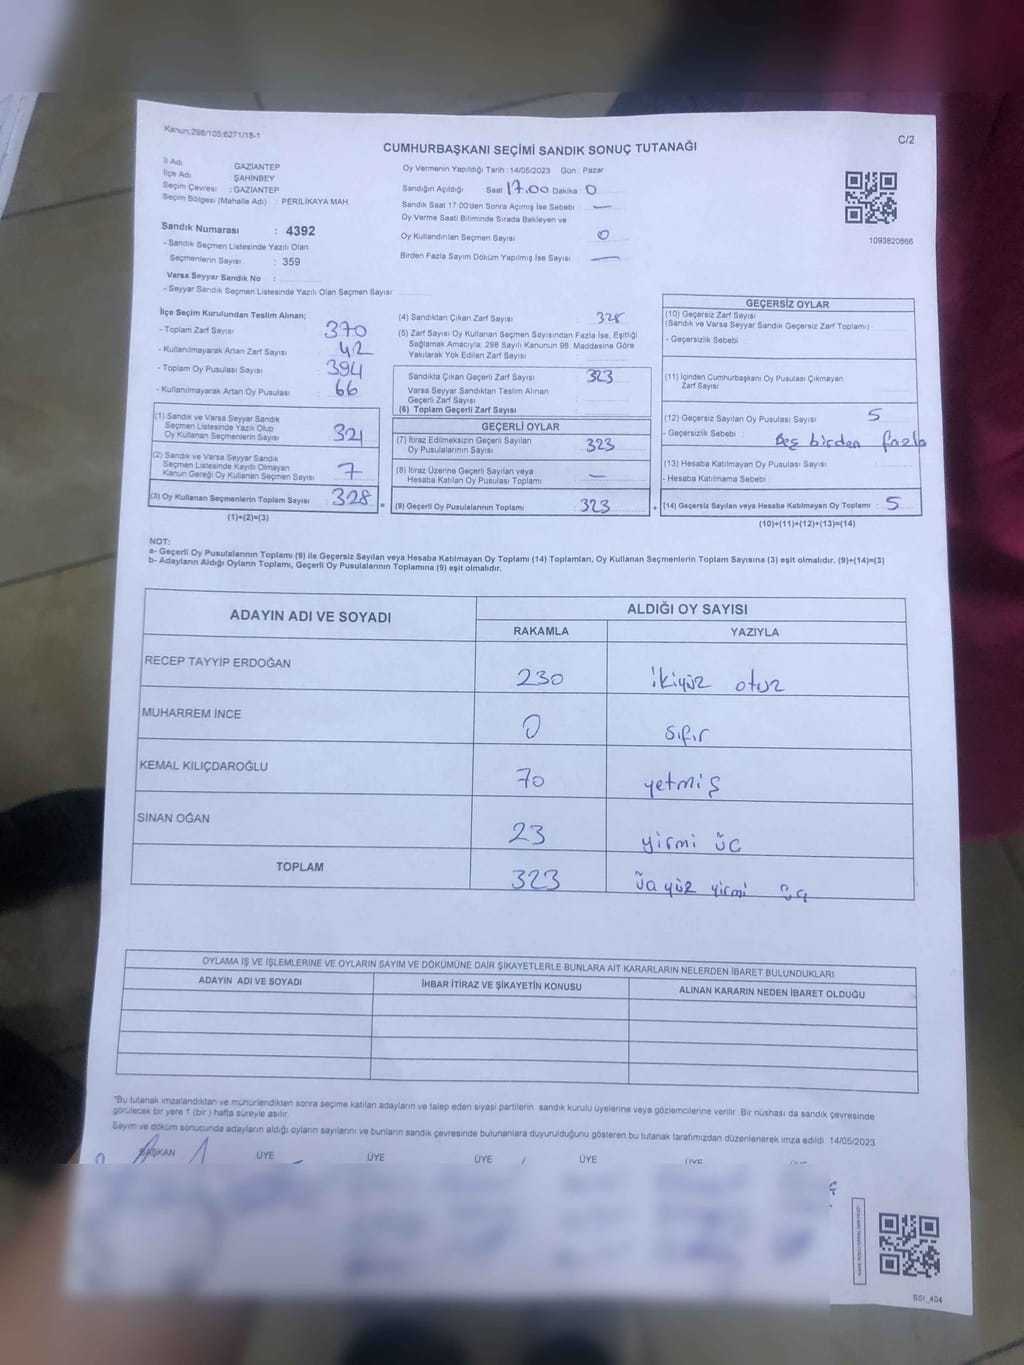 Kanun:298/105;6271/18-1
C/2
CUMHURBAŞKANI SEÇİMİ SANDIK SONUÇ TUTANAĞI
İl Adı GAZİANTEP
İlçe Adı ŞAHİNBEY
Seçim Çevresi : GAZİANTEP
Seçim Bölgesi (Mahalle Adı) : PERİLİKAYA MAH.
Sandık Numarası : 4392
- Sandık Seçmen Listesinde Yazılı Olan
Seçmenlerin Sayısı : 359
Varsa Seyyar Sandık No :
- Seyyar Sandık Seçmen Listesinde Yazılı Olan Seçmen Sayısı
Oy Vermenin Yapıldığı Tarih : 14/05/2023 Gün : Pazar
Sandığın Açıldığı Saat 17.00 Dakika 0
Sandık Saat 17:00'den Sonra Açılmış İse Sebebi : —
Oy Verme Saati Bitiminde Sırada Bekleyen ve
Oy Kullandırılan Seçmen Sayısı 0
Birden Fazla Sayım Döküm Yapılmış İse Sayısı : —
1093820866
İlçe Seçim Kurulundan Teslim Alınan;
- Toplam Zarf Sayısı 370
- Kullanılmayarak Artan Zarf Sayısı 42
- Toplam Oy Pusulası Sayısı 394
- Kullanılmayarak Artan Oy Pusulası 66
(1) Sandık ve Varsa Seyyar Sandık
Seçmen Listesinde Yazılı Olup
Oy Kullanan Seçmenlerin Sayısı 321
(2) Sandık ve Varsa Seyyar Sandık
Seçmen Listesinde Kayıtlı Olmayan
Kanun Gereği Oy Kullanan Seçmen Sayısı 7
(3) Oy Kullanan Seçmenlerin Toplam Sayısı 328 =
(1)+(2)=(3)
(4) Sandıktan Çıkan Zarf Sayısı 328
(5) Zarf Sayısı Oy Kullanan Seçmen Sayısından Fazla İse, Eşitliği
Sağlamak Amacıyla; 298 Sayılı Kanunun 98. Maddesine Göre
Yakılarak Yok Edilen Zarf Sayısı
Sandıkta Çıkan Geçerli Zarf Sayısı 323
Varsa Seyyar Sandıktan Teslim Alınan
Geçerli Zarf Sayısı
(6) Toplam Geçerli Zarf Sayısı
GEÇERLİ OYLAR
(7) İtiraz Edilmeksizin Geçerli Sayılan
Oy Pusulalarının Sayısı 323
(8) İtiraz Üzerine Geçerli Sayılan veya
Hesaba Katılan Oy Pusulası Toplamı —
(9) Geçerli Oy Pusulalarının Toplamı 323 +
GEÇERSİZ OYLAR
(10) Geçersiz Zarf Sayısı
(Sandık ve Varsa Seyyar Sandık Geçersiz Zarf Toplamı)
- Geçersizlik Sebebi
(11) İçinden Cumhurbaşkanı Oy Pusulası Çıkmayan
Zarf Sayısı
(12) Geçersiz Sayılan Oy Pusulası Sayısı 5
- Geçersizlik Sebebi Beş birden fazla
(13) Hesaba Katılmayan Oy Pusulası Sayısı
- Hesaba Katılmama Sebebi
(14) Geçersiz Sayılan veya Hesaba Katılmayan Oy Toplamı : 5
(10)+(11)+(12)+(13)=(14)
NOT:
a- Geçerli Oy Pusulalarının Toplamı (9) ile Geçersiz Sayılan veya Hesaba Katılmayan Oy Toplamı (14) Toplamları, Oy Kullanan Seçmenlerin Toplam Sayısına (3) eşit olmalıdır. (9)+(14)=(3)
b- Adayların Aldığı Oyların Toplamı, Geçerli Oy Pusulalarının Toplamına (9) eşit olmalıdır.
ADAYIN ADI VE SOYADI ALDIĞI OY SAYISI
RAKAMLA YAZIYLA
RECEP TAYYİP ERDOĞAN 230 ikiyüz otuz
MUHARREM İNCE 0 sıfır
KEMAL KILIÇDAROĞLU 70 yetmiş
SİNAN OĞAN 23 yirmi üç
TOPLAM 323 üçyüz yirmi üç
OYLAMA İŞ VE İŞLEMLERİNE VE OYLARIN SAYIM VE DÖKÜMÜNE DAİR ŞİKAYETLERLE BUNLARA AİT KARARLARIN NELERDEN İBARET BULUNDUKLARI
ADAYIN ADI VE SOYADI İHBAR İTİRAZ VE ŞİKAYETİN KONUSU ALINAN KARARIN NEDEN İBARET OLDUĞU
"Bu tutanak imzalandıktan ve mühürlendikten sonra seçime katılan adayların ve talep eden siyasi partilerin sandık kurulu üyelerine veya gözlemcilerine verilir. Bir nüshası da sandık çevresinde
görülecek bir yere 1 (bir) hafta süreyle asılır.
Sayım ve döküm sonucunda adayların aldığı oyların sayılarını ve bunların sandık çevresinde bulunanlara duyurulduğunu gösteren bu tutanak tarafımızdan düzenlenerek imza edildi. 14/05/2023
BAŞKAN ÜYE ÜYE ÜYE ÜYE ÜYE
SSI_404